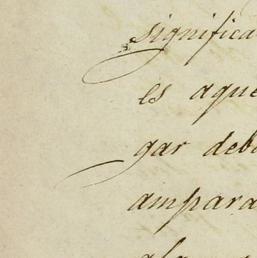 significa
es aque
gar deb
ampara